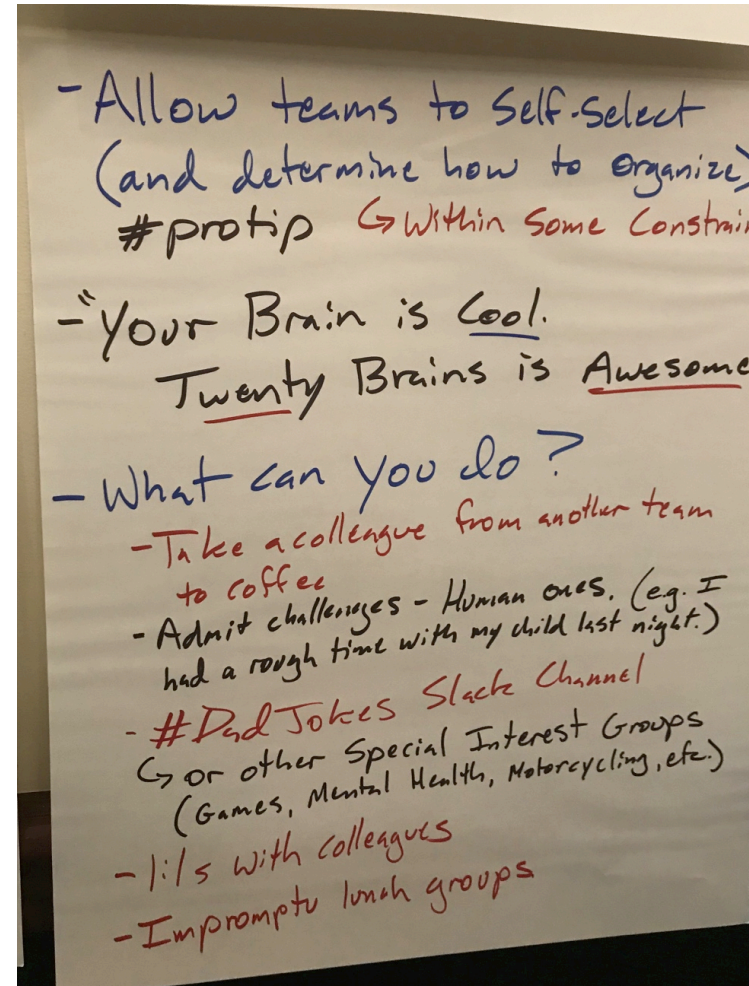 - Allow teams to Self-Select
(and determine how to organize)
#protip ↳ Within Some Constrain
- "Your Brain is Cool.
Twenty Brains is Awesome
- What can you do?
- Take a colleague from another team
to coffee
- Admit challenges - Human ones. (e.g. I
had a rough time with my child last night.)
- #DadJokes Slack Channel
↳ or other Special Interest Groups
(Games, Mental Health, Motorcycling, etc.)
- 1:1s with colleagues
- Impromptu lunch groups